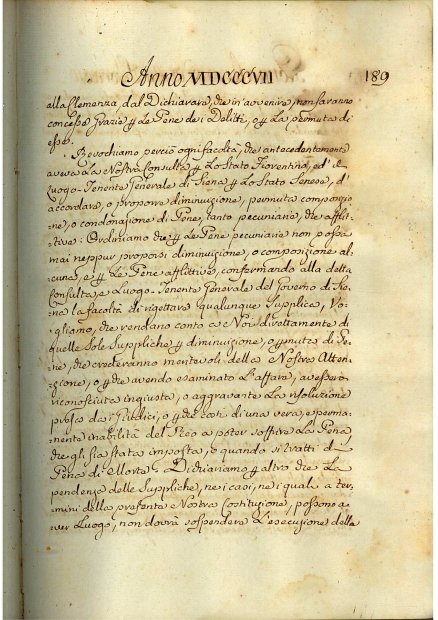 Anno MDCCCVII 189
alla Clemenza, dal Dichiarare, che in avvenire, non saranno
concesse Grazie per le Pene dei Delitti, o per la permuta di
esse.
Revochiamo perciò ogni facoltà, che antecedentemente
aveva la Nostra Consulta per Lo Stato Fiorentino, ed il
Luogo-Tenente Generale di Siena per Lo Stato Senese, d'
accordare, o proporre diminuzione, permuta composizio
ne, o condonazione di Pene, tanto pecuniarie, che afflit
tive: Ordiniamo che per Le Pene pecuniarie non possa
mai neppur proporsi diminuzione, o composizione al
cuna, e per Le Pene afflittive, confermando alla detta
Consulta, e Luogo-Tenente Generale del Governo di Sie
na la facoltà di rigettare qualunque Supplica, Vo
gliamo, che rendano conto a Noi direttamente di
quelle Sole Suppliche per diminuzione, o permuta di Pe
ne, che crederanno meritevoli della Nostra Atten
zione, o per che avendo esaminato L'affare, avessero
riconosciuta ingiusta, o aggravante La risoluzione
presa dai Giudici, o per che costi di una vera, e perma
nente inabilità del Reo a poter soffrire La Pena
che gli sia stata imposta, o quando si tratti di
Pena di Morte. Dichiariamo per altro che La
pendenza delle Suppliche, nei casi, nei quali a ter
mini della presente Nostra Costituzione, possono a
ver Luogo, non dovrà sospendere L'esecuzione della